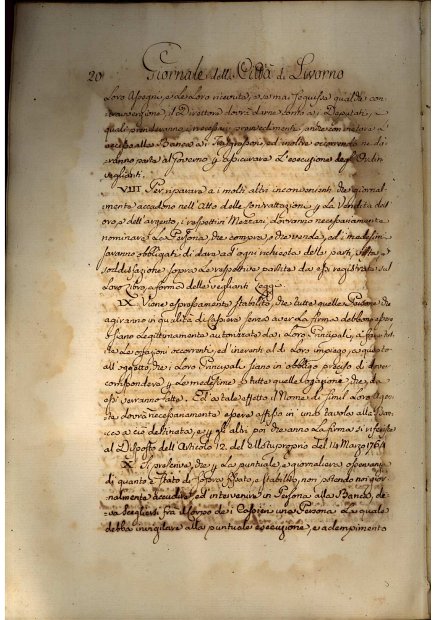 20 Giornale della Città di Livorno
Loro Assegne, e le Loro ricevute, e se mai seguisse qualche con:
troversione, il Direttore dovrà darne conto a i Deputati, e
quali prenderanno i necessarj provvedimenti anche con vietare l'
accesso alla Banca a i Trasgressori, ed inoltre occorrendo ne da:
ranno parte al Governo p assicurare L'esecuzione degl'Ordini
veglianti.
VIII Per riparare a i molti altri inconvenienti che giornal:
mente accadono nell'Atto delle Contrattazioni p La Vendita dell'
oro, e dell'argento, i rispettivi Mezzani dovranno necessariamente
nominare La Persona che compra, e che vende, ed i medesimi
saranno obbligati di dare ad ogni richiesta delle parti
soddisfazione sopra Le respettive partite da essi registrate sul
Loro Libro, a forma delle veglianti Leggi.
IX Viene espressamente stabilito, che tutte quelle Persone che
agiranno in qualità di Cassieri senza aver La firma debbano esser
e siano Legittimamente autorizzate da i Loro Principali, a far tut:
te Le occasioni occorrenti, ed inerenti al di Loro impiego, a questo
effetto, che i Loro Principali siano in obbligo preciso di dover
corrispondere p Le medesime e tutte quelle che da
essi verranno fatte. Ed a tale effetto il Nome di simil Loro Age:
nte dovrà necessariamente essere affisso in una tavola alla Ban:
ca a ciò destinata, e p gli altri poi che anno La firma si riferisce
al Disposto dell'Articolo 12. del Motuproprio Del 14 Marzo
X Si prescrive, che p La puntuale, e giornaliera osservanza
di quanto è stato di sopra fissato, e stabilito, non potendo noi gior:
nalmente accudire, ed intervenire in Persona alla Banca, de:
va scegliersi fra il Corpo de i Cassieri una Persona La quale
debba invigilare alla puntuale esecuzione, e adempimento